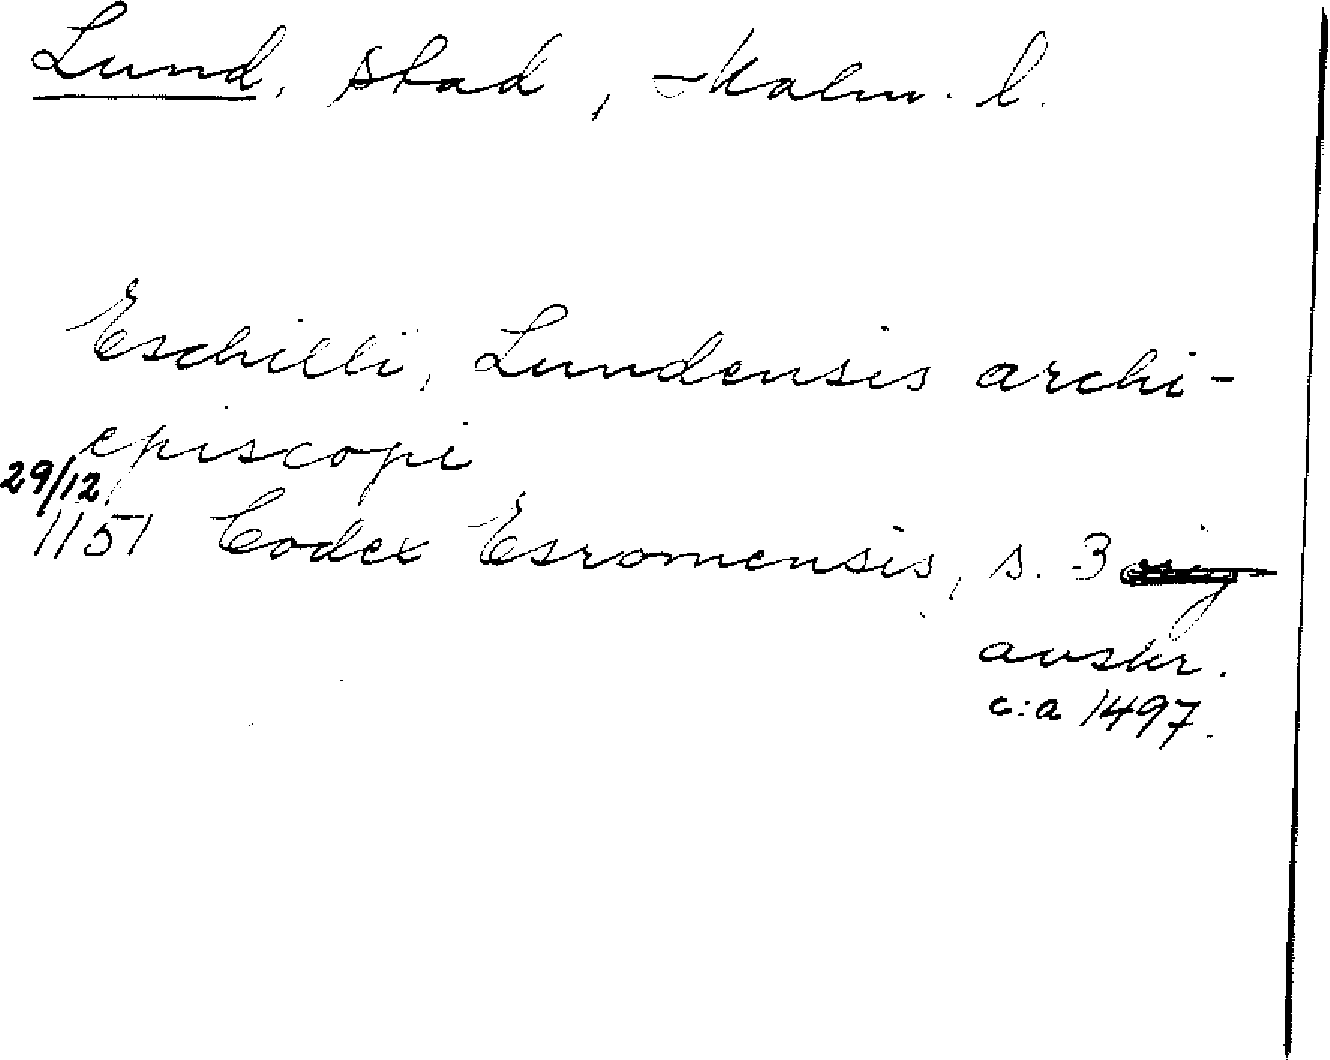 Lund, stad, Malm. l.
Eschilli, Lundensis archi-
episcopi
29/12
1151 Codex Esromensis, s. 3 orig
avskr.
c:a 1497.